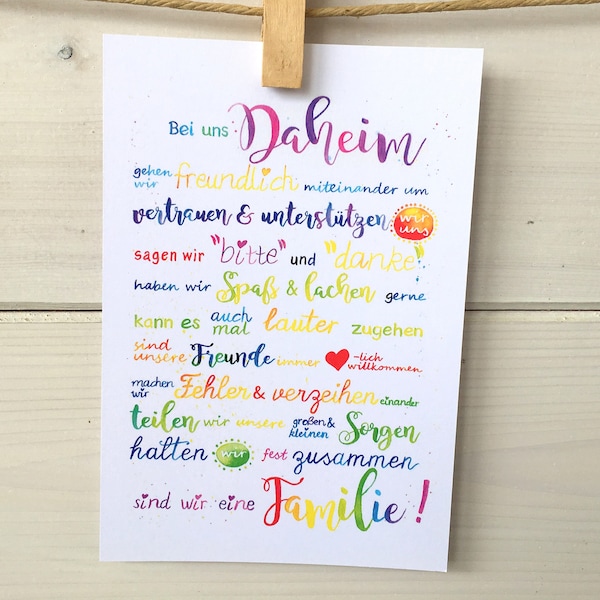 Bei uns Daheim
gehen wir freundlich miteinander um
vertrauen & unterstützen wir uns
sagen wir "bitte" und "danke"
haben wir Spaß & lachen gerne
kann es auch mal lauter zugehen
sind unsere Freunde immer ♥-lich willkommen
machen wir Fehler & verzeihen einander
teilen wir unsere großen & kleinen Sorgen
halten wir fest zusammen
sind wir eine Familie!